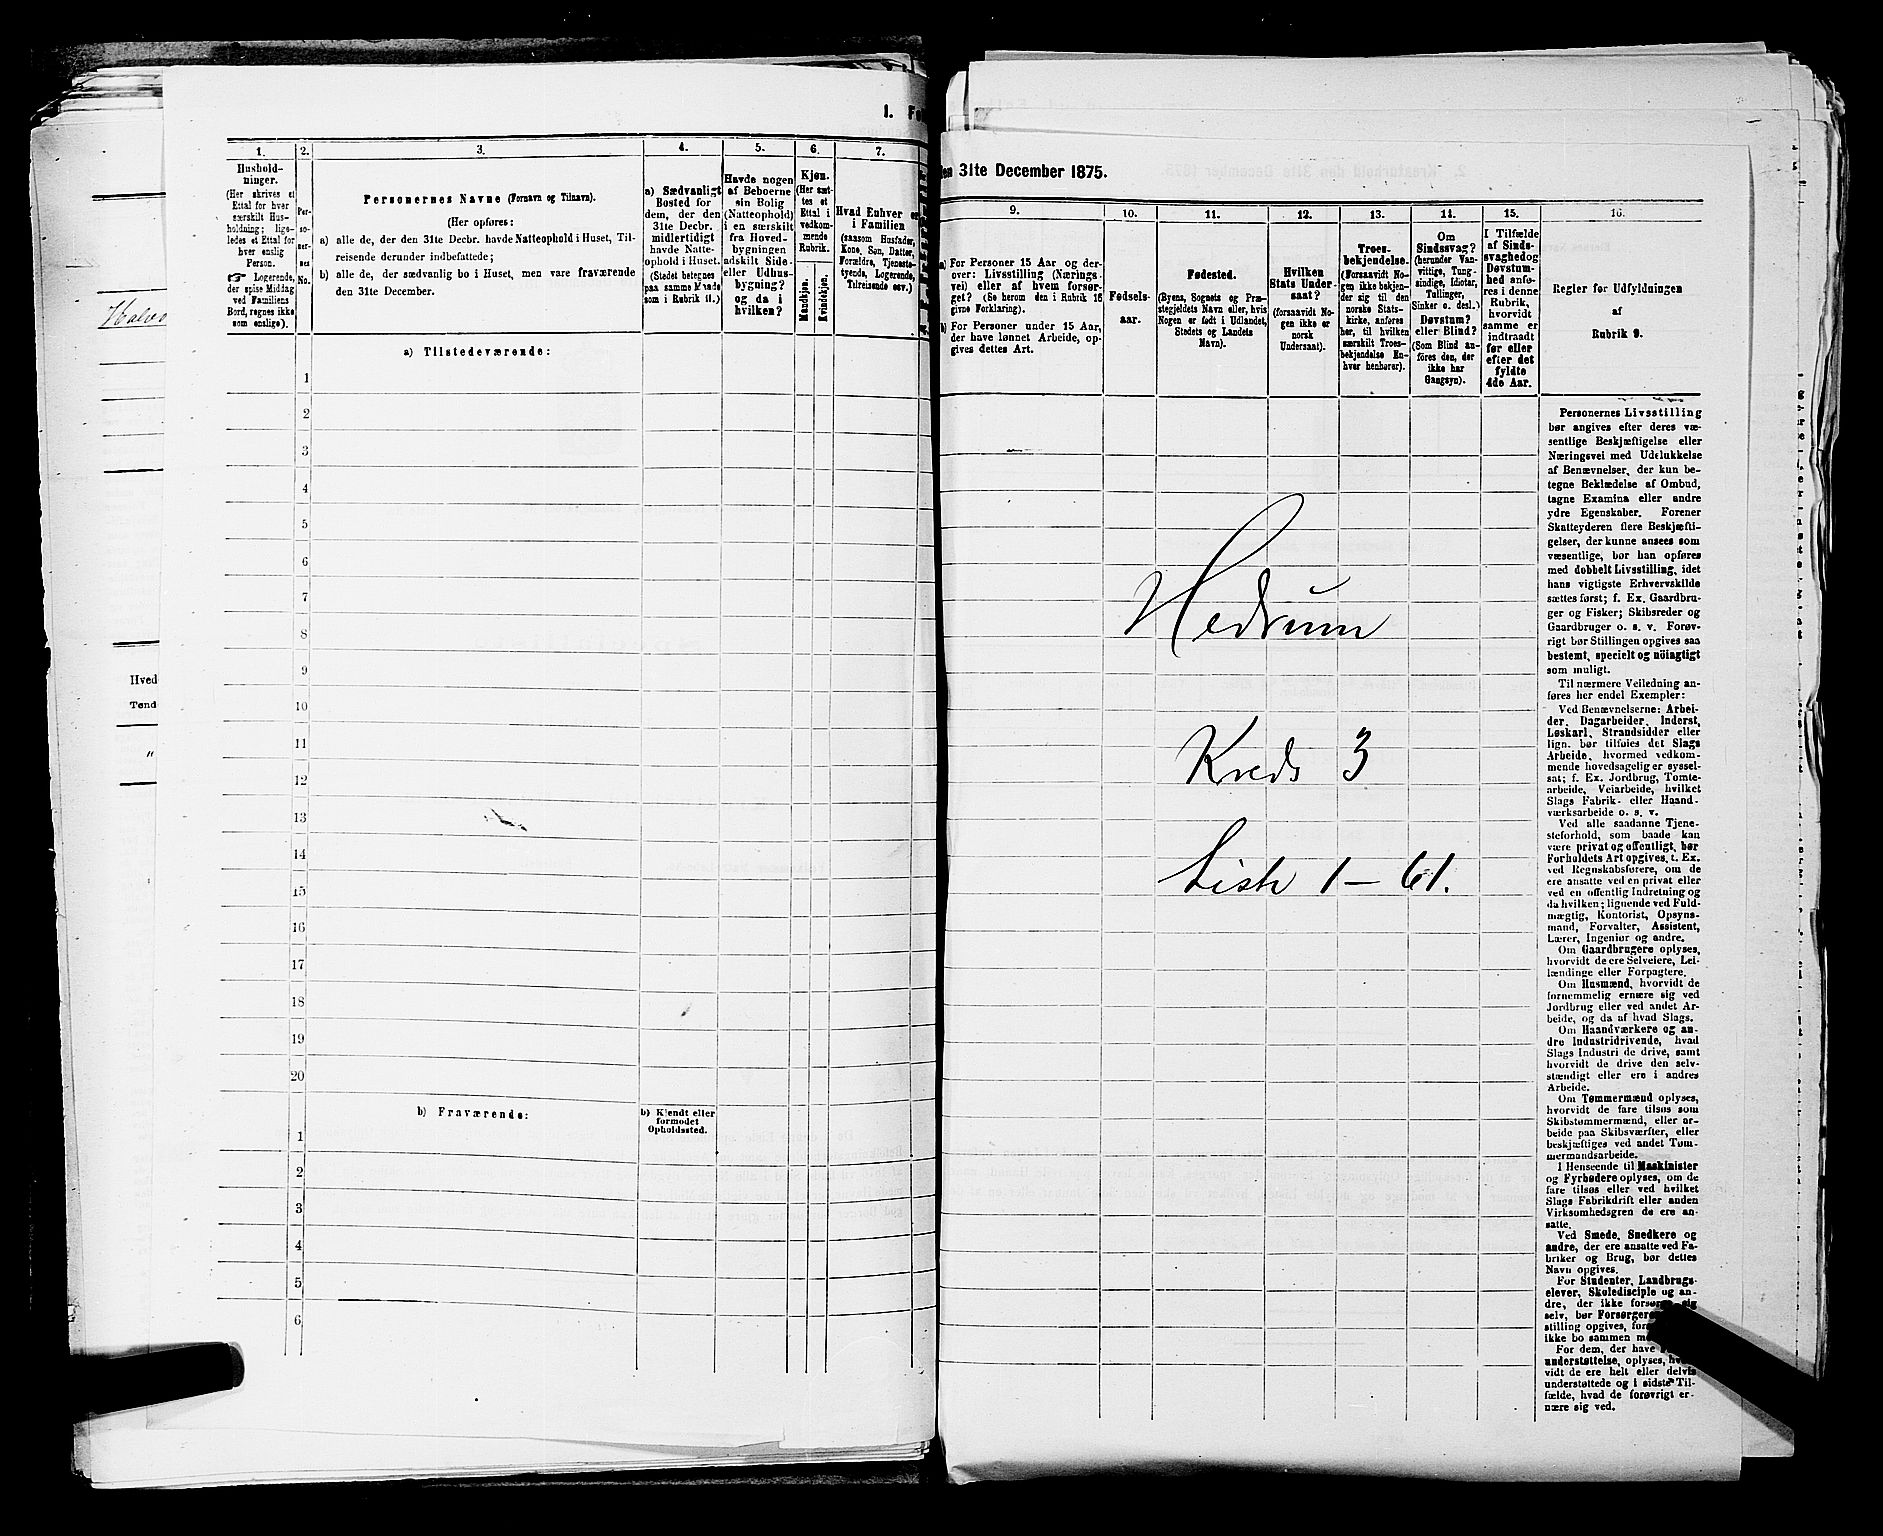 Halvo
Hved
Tønd
"
1. Fo
1.
2.
3.
4.
5.
6.
7.
Hushold-
ninger.
(Her skrives et
Ettal for hver
særskilt Hus-
holdning; lige-
ledes et Ettal for
hver enslig
Person.
☞ Logerende,
der spise Middag
ved Familiens
Bord, regnes ikke
som enslige).
Per-
so-
ner-
nes
No.
Personernes Navne (Fornavn og Tilnavn).
(Her opføres:
a) alle de, der den 31te Decbr. havde Natteophold i Huset, Til-
reisende derunder indbefattede;
b) alle de, der sædvanlig bo i Huset, men vare fraværende
den 31te December.
a) Sædvanligt
Bosted for
dem, der den
31te Decbr.
midlertidigt
havde Natte-
ophold i Huset.
(Stedet betegnes
paa samme Maade
som i Rubrik 11.)
Havde nogen
af Beboerne
sin Bolig
(Natteophold)
i en særskilt
fra Hoved-
bygningen
adskilt Side-
eller Udhus-
bygning?
og da i
hvilken?
Kjøn.
(Her sæt-
tes et
Ettal i
vedkom-
mende
Rubrik.
Mandkjøn.
Kvindekjøn.
Hvad Enhver er
i Familien
(saasom Husfader,
Kone, Søn, Datter,
Forældre, Tjeneste-
tyende, Logerende,
Tilreisende osv.)
a) Tilstedeværende:
1
2
3
4
5
6
7
8
9
10
11
12
13
14
15
16
17
18
19
20
b) Fraværende:
b) Kjendt eller
formodet
Opholdssted.
1
2
3
4
5
6
den 31te December 1875.
9.
10.
11.
12.
13.
14.
15.
16.
a) For Personer 15 Aar og der-
over: Livsstilling (Nærings-
vei) eller af hvem forsør-
get? (Se herom den i Rubrik 16
givne Forklaring).
b) For Personer under 15 Aar,
der have lønnet Arbeide, op-
gives dettes Art.
Fødsels-
aar.
Fødested.
(Byens, Sognets og Præ-
stegjeldets Navn eller, hvis
Nogen er født i Udlandet,
Stedets og Landets
Navn).
Hvilken
Stats Under-
saat?
(forsaavidt No-
gen ikke er
norsk
Undersaat).
Troes-
bekjendelse.
(Forsaavidt No-
gen ikke bekjen-
der sig til den
norske Stats-
kirke, anføres
her, til hvilken
særskilt Troes-
bekjendelse En-
hver henhører).
Om
Sindssvag?
(herunder Van-
vittige, Tung-
sindige, Idioter,
Tullinger,
Sinker o. desl.)
Døvstum?
eller Blind?
(Som Blind an-
føres den, der
ikke har
Gangsyn).
I Tilfælde
af Sinds-
svaghed og
Døvstum-
hed anfø-
res i denne
Rubrik,
hvorvidt
samme er
indtraadt
før eller
efter det
fyldte
4de Aar.
Regler før Udfyldningen
af
Rubrik 9.
Hedrum
Kreds 3
Liste 1 – 61.
Personernes Livsstilling
bør angives efter deres væ-
sentlige Beskjæftigelse eller
Næringsvei med Udelukkelse
af Benævnelser, der kun be-
tegne Beklædelse af Ombud,
tagne Examina eller andre
ydre Egenskaber. Forener
Skatteyderen flere Beskjæfti-
gelser, der kunne ansees som
væsentlige, bør han opføres
med dobbelt Livsstilling, idet
hans vigtigste Erhvervskilde
sættes først; f. Ex. Gaardbru-
ger og Fisker; Skibsreder og
Gaardbruger o. s. v. Forøv-
rigt bør Stillingen opgives saa
bestemt, specielt og nöiagtigt
som muligt.
Til nærmere Veiledning an-
føres her endel Exempler:
Ved Benævnelserne: Arbei-
der, Dagarbeider, Inderst,
Løskarl, Strandsidder eller
lign. bør tilføies det Slags
Arbeide, hvormed vedkom-
mende hovedsagelig er syssel-
sat; f. Ex. Jordbrug, Tomte-
arbeide, Veiarbeide, hvilket
Slags Fabrik- eller Haand-
værksarbeide o. s. v.
Ved alle saadanne Tjene-
steforhold, som baade kan
være privat og offentligt, bør
Forholdets Art opgives, t. Ex.
ved Regnskabsførere, om de
ere ansatte ved en privat eller
ved en offentlig Indretning og
da hvilken; lignende ved Fuld-
mægtig, Kontorist, Opsyns-
mand, Forvalter, Assistent,
Lærer, Ingeniør og andre.
Om Gaardbrugere oplyses,
hvorvidt de ere Selveiere, Lei-
lændinge eller Forpagtere.
Om Husmænd, hvorvidt de
fornemmelig ernære sig ved
Jordbrug eller ved andet Ar-
beide, og da af hvad Slags.
Om Haandværkere og an-
dre Industridrivende, hvad
Slags Industri de drive, samt
hvorvidt de drive den selv-
stændigt eller ere i andres
Arbeide.
Om Tømmermænd oplyses,
hvorvidt de fare tilsøs som
Skibstømmermænd, eller ar-
beide paa Skibsværfter, eller
beskjæftiges ved andet Tøm-
mermandsarbeide.
I Henseende til Maskinister
og Fyrbødere oplyses, om de
fare tilsøs eller ved hvilket
Slags Fabrikdrift eller anden
Virksomhedsgren de ere an-
satte.
Ved Smede, Snedkere og
andre, der ere ansatte ved Fa-
briker og Brug, bør dettes
Navn opgives.
For Studenter, Landbrugs-
elever, Skoledisciple og an-
dre, der ikke forsørge sig
selv, bør Forsørgeren
stilling opgives, for
ikke bo sammen m
For dem, der have
understøttelse, oplyses,
vidt de ere helt eller delvis
understøttede og i sidste Til-
fælde, hvad de forøvrigt er-
nære sig ved.